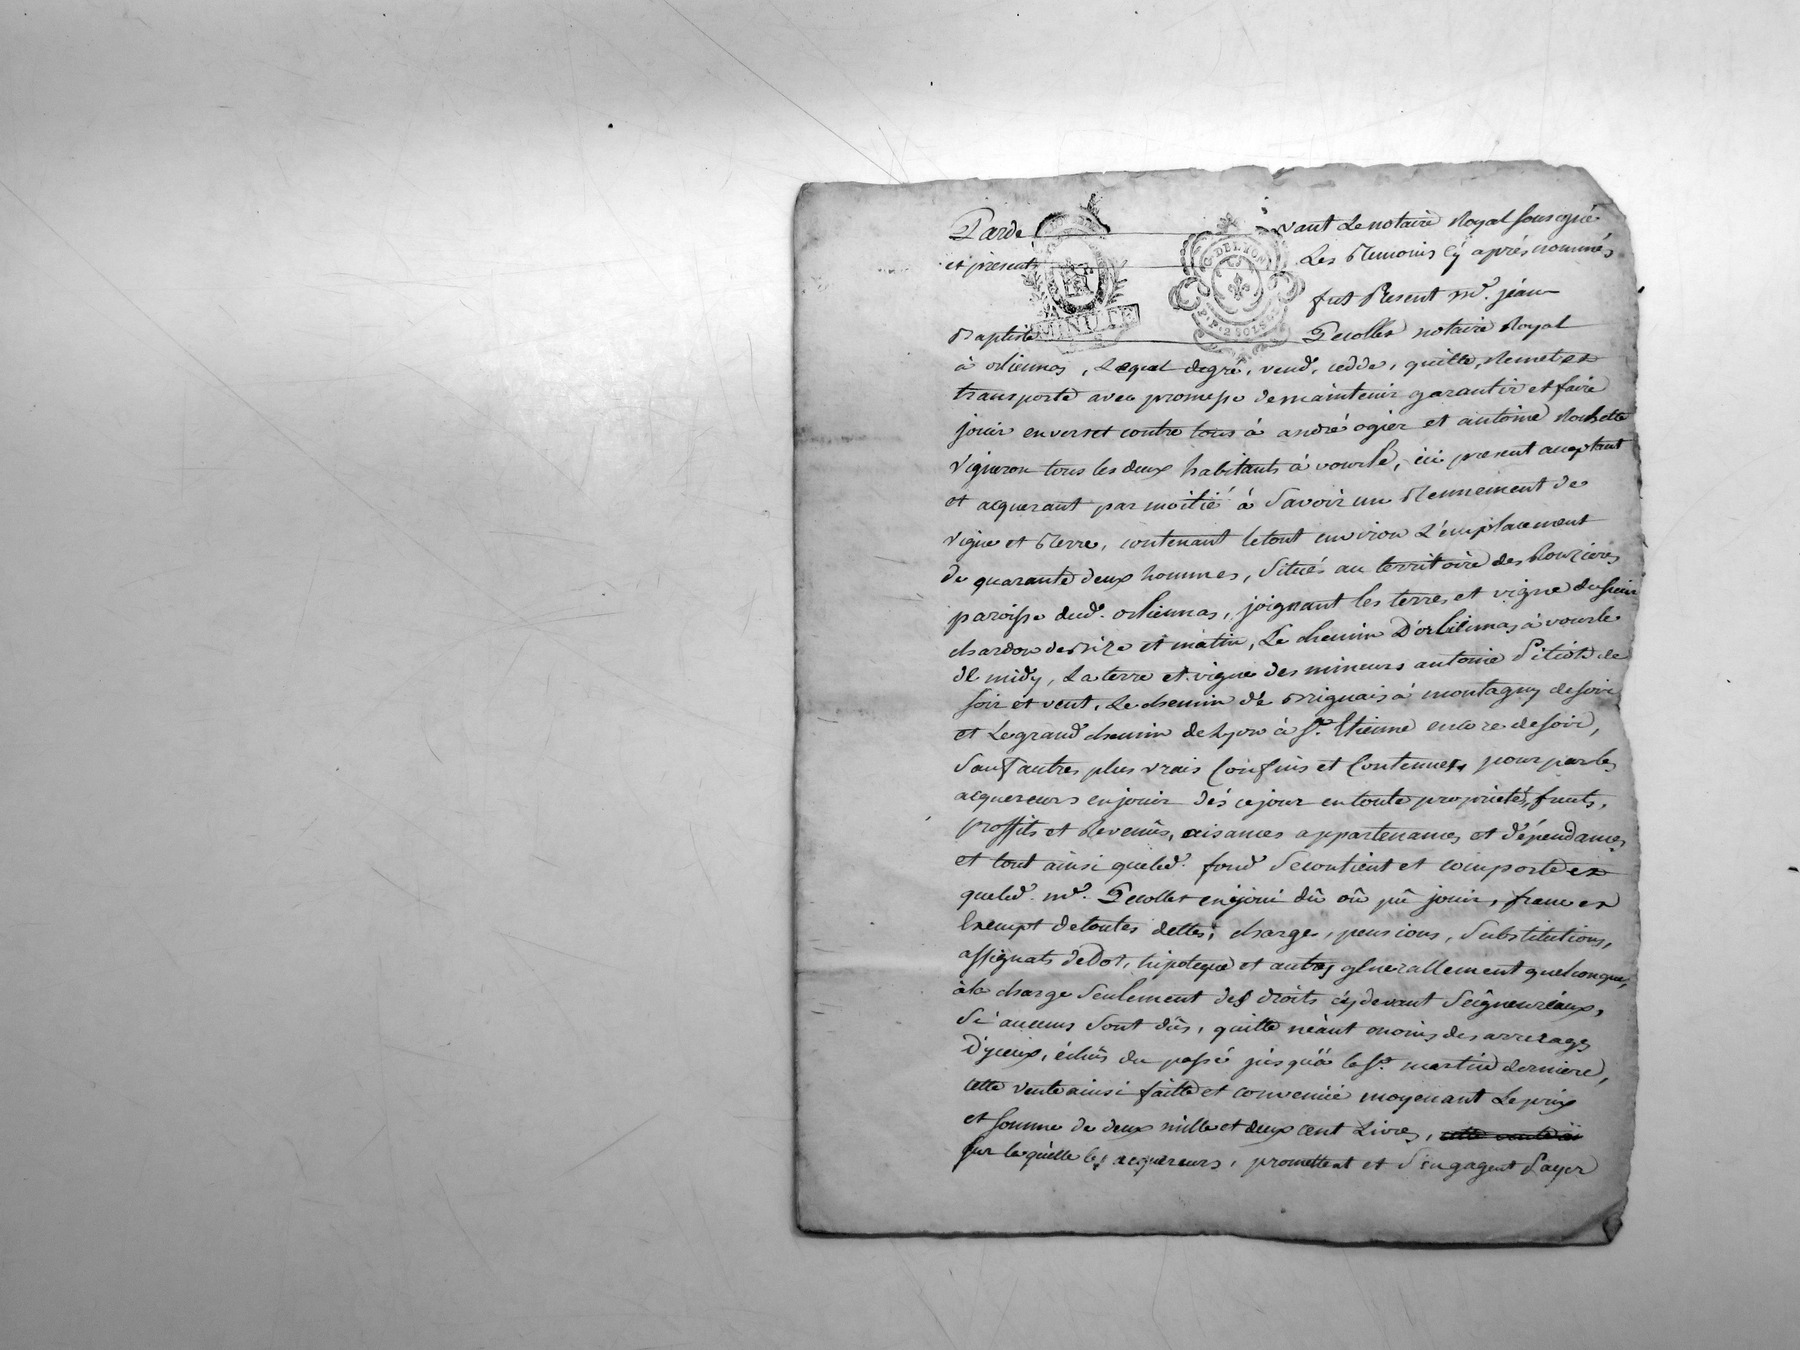 Parde vant Le notaire Royal sousigné
et présents Les Temoins cÿ après nommés
fut Present Me. jéan
Baptiste Decollet notaire Royal
à orlienas, Lequel degré, vend, cedde, quitte, Remet et
transporte avec promesse de maintenir garantir et faire
jouir envers et contre tous à andré ogier et antoine
vigneron tous les deux habitants à vourle, ici present acceptant
et acquerant par moitié à Savoir un Tennement de
vigne et Terre, contenant le tout environ L'emplacement
de quarante deux hommes, Situés au territoire des
paroisse dud. orlienas, joignant les terres et vigne du sieur
chardon de Bize et matin, Le chemin D'orlienas à vourle
de midy, La terre et vigne des mineurs antoine de
soir et vent, Le chemin de Brignais à montagny de soir
et Le grand chemin de Lyon à St. Etienne encore de soir,
Sauf autres plus vrais Confins et Contenues, pour par les
acquereurs en jouir dés ce jour en toute proprieté, fruits,
proffits et Revenûs, aisances appartenances et d'épendances
et tout ainsi que led. fond Se contient et comporte et
que led. Me. Decollet en a joui dû où pû jouir, franc et
Exempt de toutes dettes, charges, pensions, Substitutions,
assignats de Dot, hipoteque et autres génerallement quelconques,
à la charge Seulement des droits cÿ devant Seigneuriaux,
Si aucuns Sont dûs, quitte néant moins des arrerages
D'yceux, échûs du passé jusqu'à la St. martin derniere,
cette vente ainsi faitte et convenüe moyenant Le prix
et somme de deux mille et deux cent Livres, cette vente ai
sur laquelle les acquereurs, promettent et S'engagent Payer
MINUTE
G. DE LYON
P.P. 2 SOLS